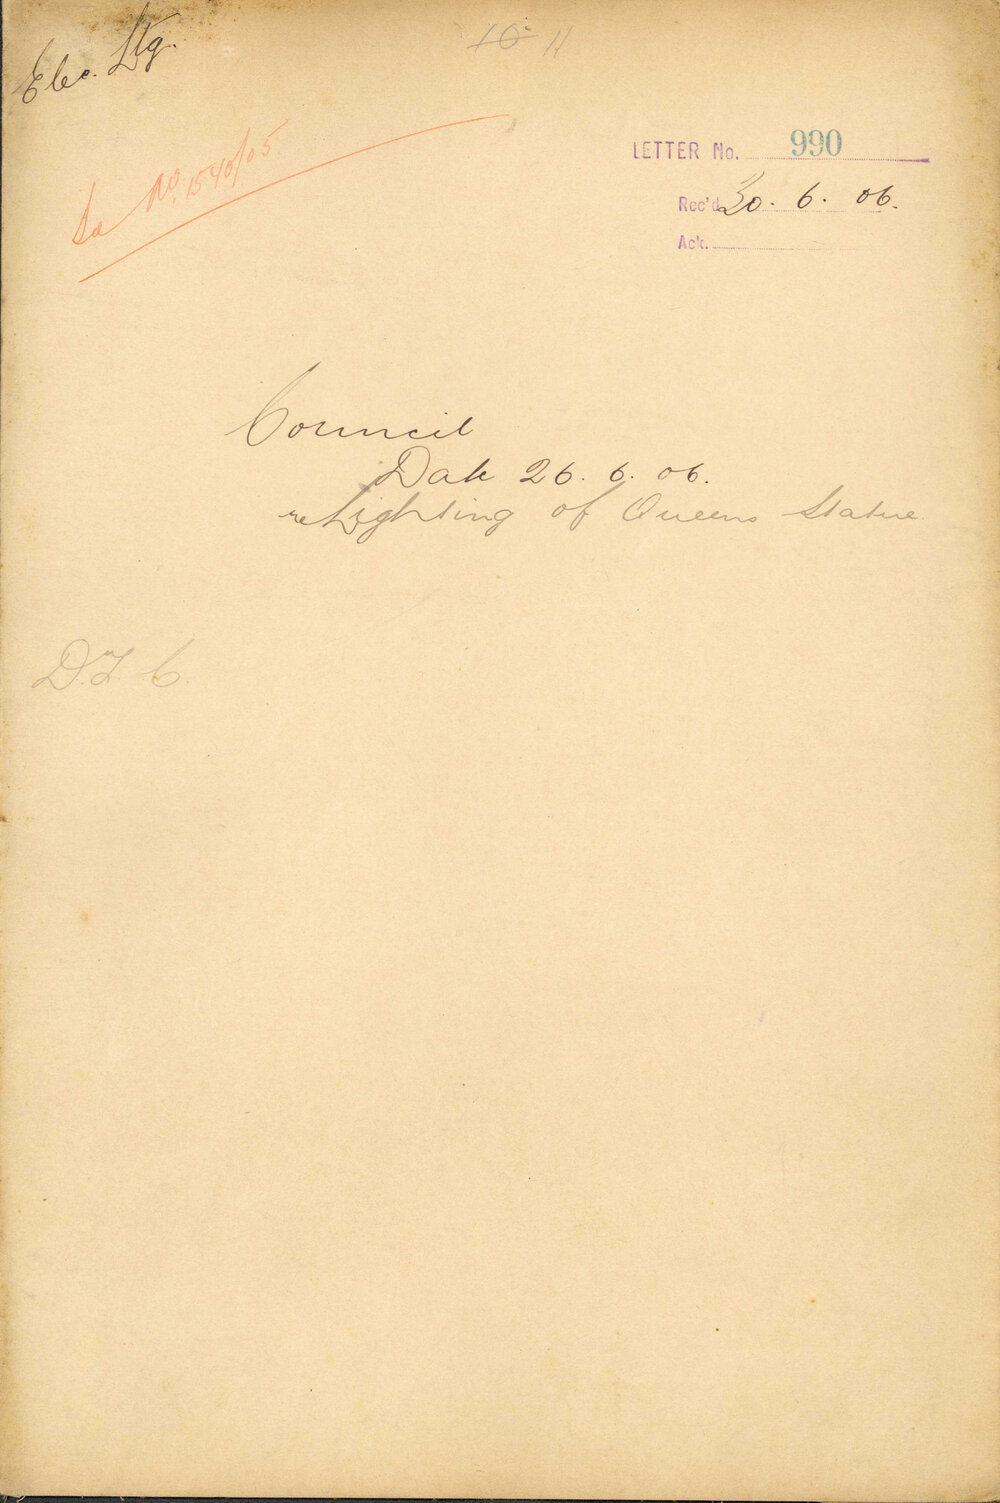 Elec. Ltg.
10 11
No. 1540/05
LETTER No. 990
Rec'd 30. 6. 06.
Ack.
Council
Date 26. 6. 06.
re Lighting of Queens Statue.